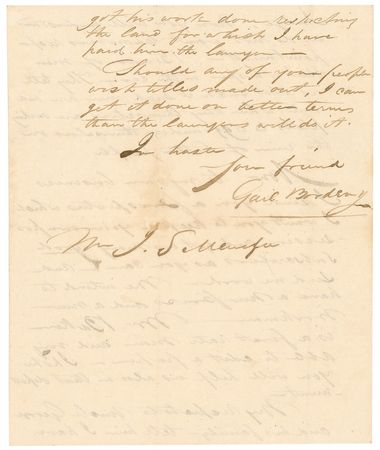 got his work done respecting
the land for which I have
paid him the lawyer —
Should any of your people
wish titles made out, I can
get it done on better terms
than the lawyers will do it.
In haste
Your friend
Gail Borden Jr
Mr J. S. Menefee